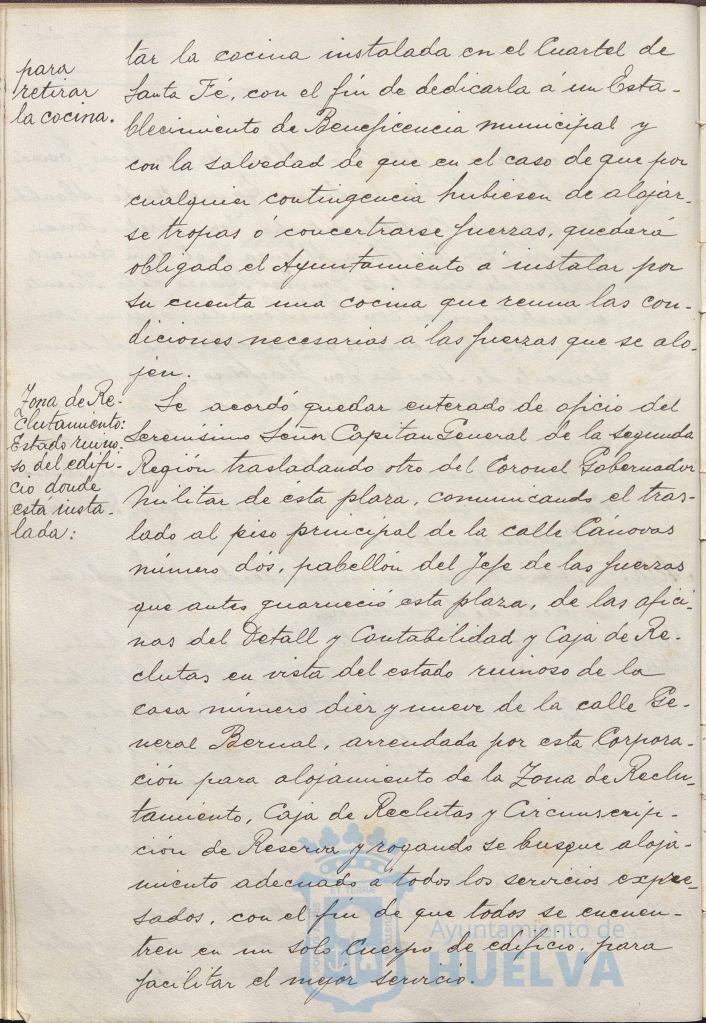 para
retirar
la cocina.
tar la cocina instalada en el Cuartel de
Santa Fé, con el fin de dedicarla á un Esta-
blecimiento de Beneficencia municipal y
con la salvedad de que en el caso de que por
cualquier contingencia hubiesen de alojar-
se tropas ó concertrarse fuerzas, quedará
obligado el Ayuntamiento á instalar por
su cuenta una cocina que reuna las con-
diciones necesarias á las fuerzas que se alo-
jen.
Zona de Re-
clutamiento:
Estado ruino-
so del edifi-
cio donde
está insta-
lada:
Se acordó quedar enterado de oficio del
Serenísimo Señor Capitan General de la segunda
Región trasladando otro del Coronel Gobernador
Militar de ésta plaza, comunicando el tras-
lado al piso principal de la calle Cánovas
número dós, pabellón del Jefe de las fuerzas
que antes guarneció esta plaza, de las ofici-
nas del Detall y Contabilidad y Caja de Re-
clutas en vista del estado ruinoso de la
casa número diez y nueve de la calle Ge-
neral Bernal, arrendada por esta Corpora-
ción para alojamiento de la Zona de Reclu-
tamiento, Caja de Reclutas y Circunscrip-
ción de Reserva y rogando se busque aloja-
miento adecuado á todos los servicios expre-
sados, con el fin de que todos se encuen-
tren en un solo Cuerpo de edificio, para
facilitar el mejor servicio.
Ayuntamiento de
HUELVA